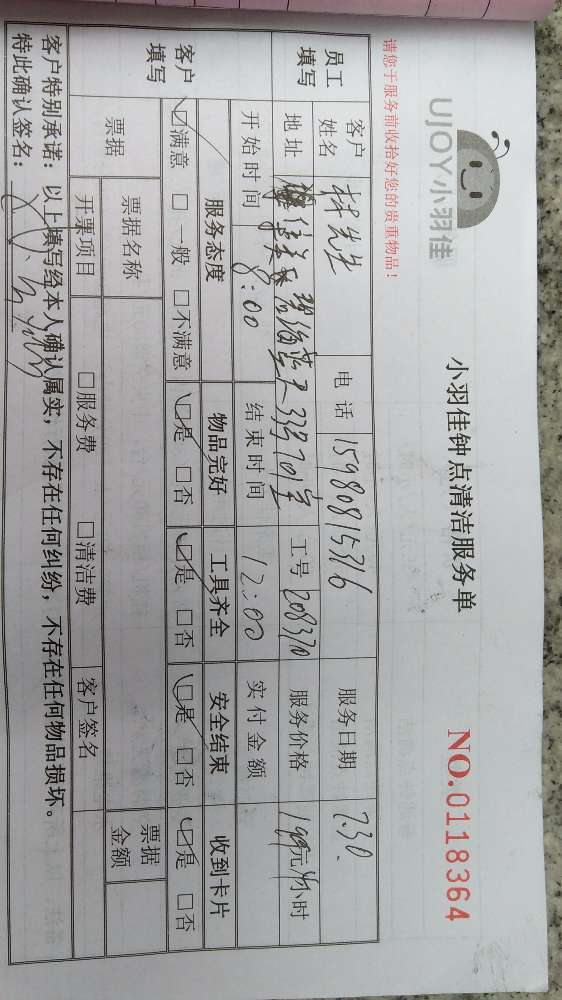 UJOY小羽佳
小羽佳钟点清洁服务单
NO.0118364
请您于服务前收拾好您的贵重物品！
员工填写
客户姓名 林先生 电话 15980815316 服务日期 7.30.
地址 碧海蓝天33号701室 工号 208370 服务价格 199元4小时
开始时间 8:00 结束时间 12:00 实付金额
客户填写
服务态度 物品完好 工具齐全 安全结束 收到卡片
☑满意 □一般 □不满意 ☑是 □否 ☑是 □否 ☑是 □否 ☑是 □否
票据 票据名称 票据金额
开票项目 □服务费 □清洁费 客户签名
客户特别承诺：以上填写经本人确认属实，不存在任何纠纷，不存在任何物品损坏。
特此确认签名：